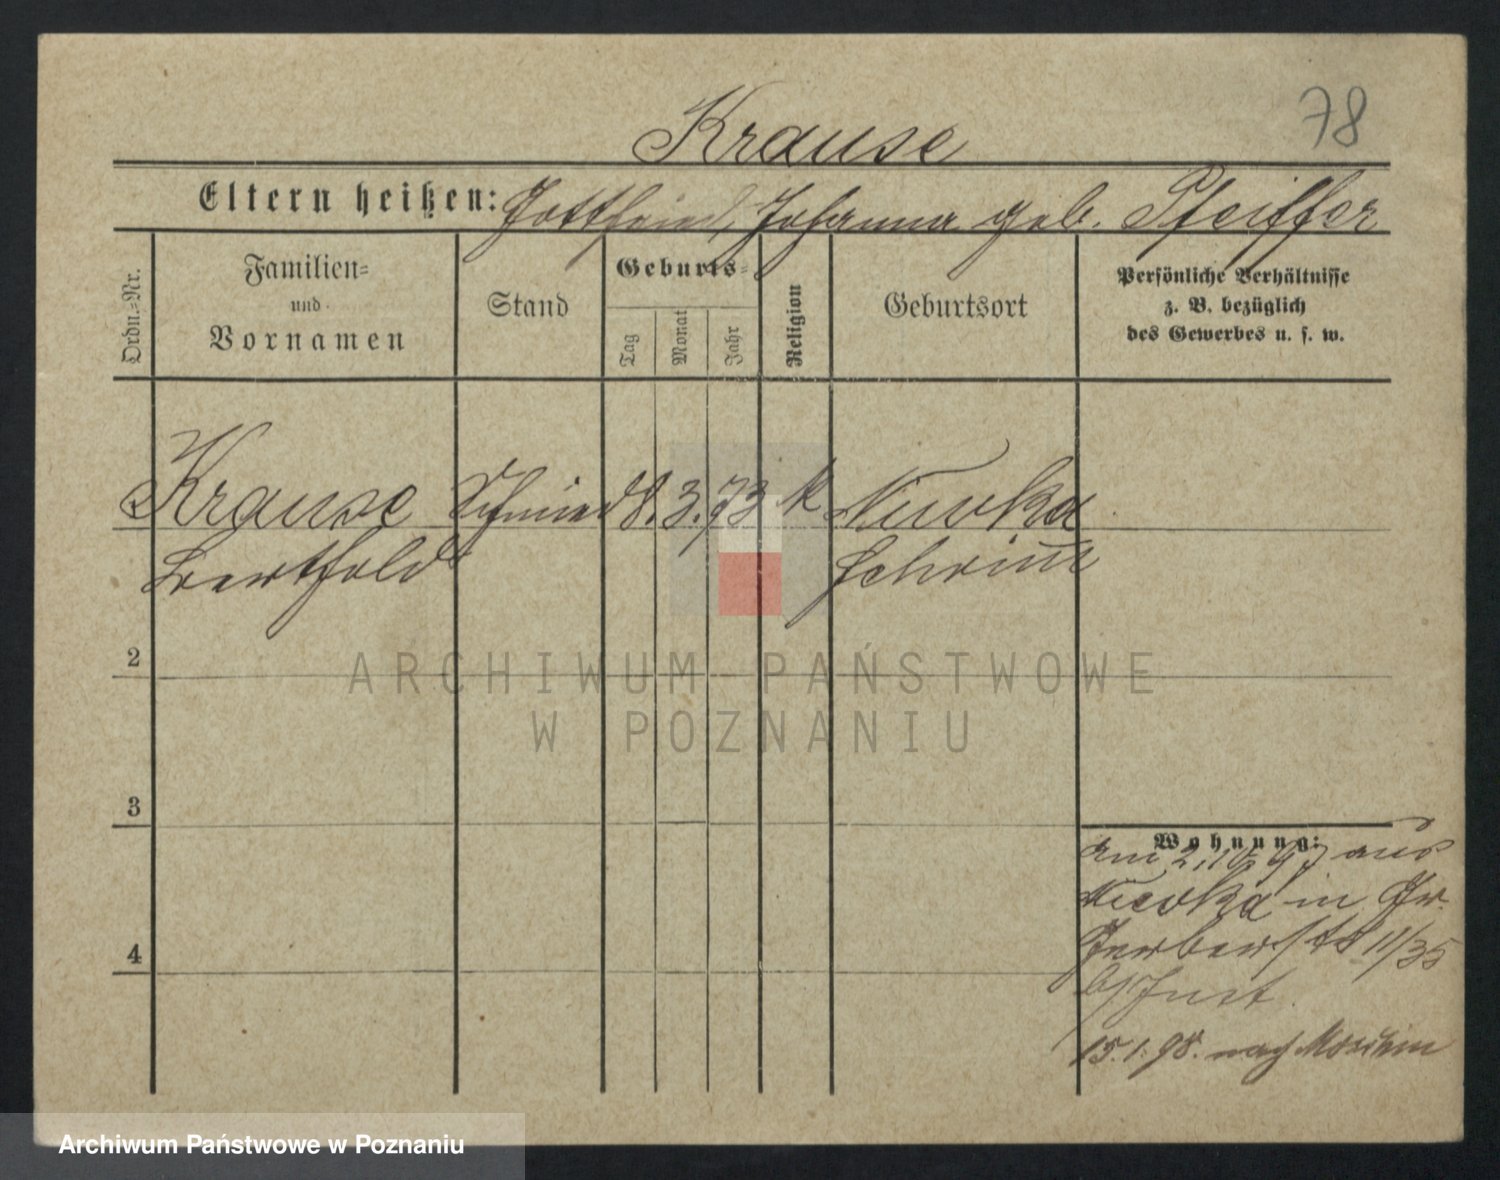 78
Krause
Eltern heißen: Gottfried, Johanna geb. Pfeiffer
Ordn.-Nr.
Familien-
und
Vornamen
Stand
Geburts-
Tag
Monat
Jahr
Religion
Geburtsort
Persönliche Verhältnisse
z. B. bezüglich
des Gewerbes u. s. w.
Krause Schmied 8. 3. 73 k Niwka
Berthold Schrim
2
3
4
Wohnung:
am 2.10.97 aus
Niwka in Gr.
Gerberstr 11/35
b/Just.
15.1.98. nach Moschin
ARCHIWUM PAŃSTWOWE
W POZNANIU
Archiwum Państwowe w Poznaniu